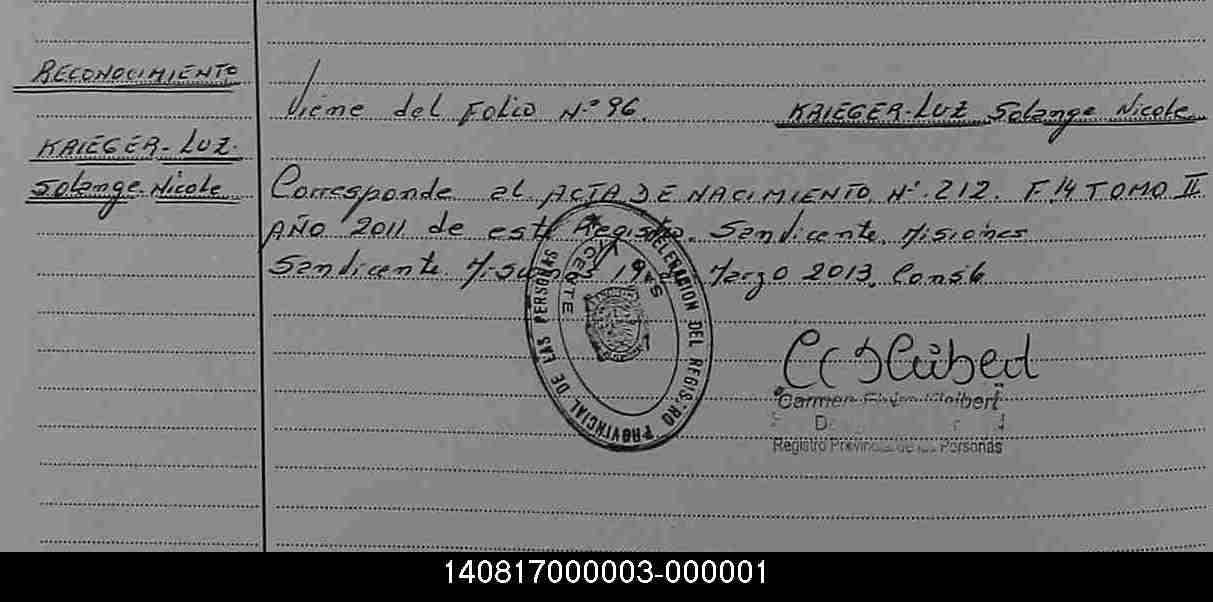 RECONOCIMIENTO
KRIEGER-LUZ.
Solange Nicole
Viene del FOLIO N.º 96. KRIEGER-LUZ Solange Nicole
Corresponde al ACTA DE NACIMIENTO N.º 212. F.14 TOMO II
AÑO 2011 de este Registro. Sanvicente, Misiones
Sanvicente Marzo 2013.
DELEGACION DEL REGISTRO PROVINCIAL DE LAS PERSONAS
SAN VICENTE
Carmen
Registro Provincial de las Personas
140817000003-000001